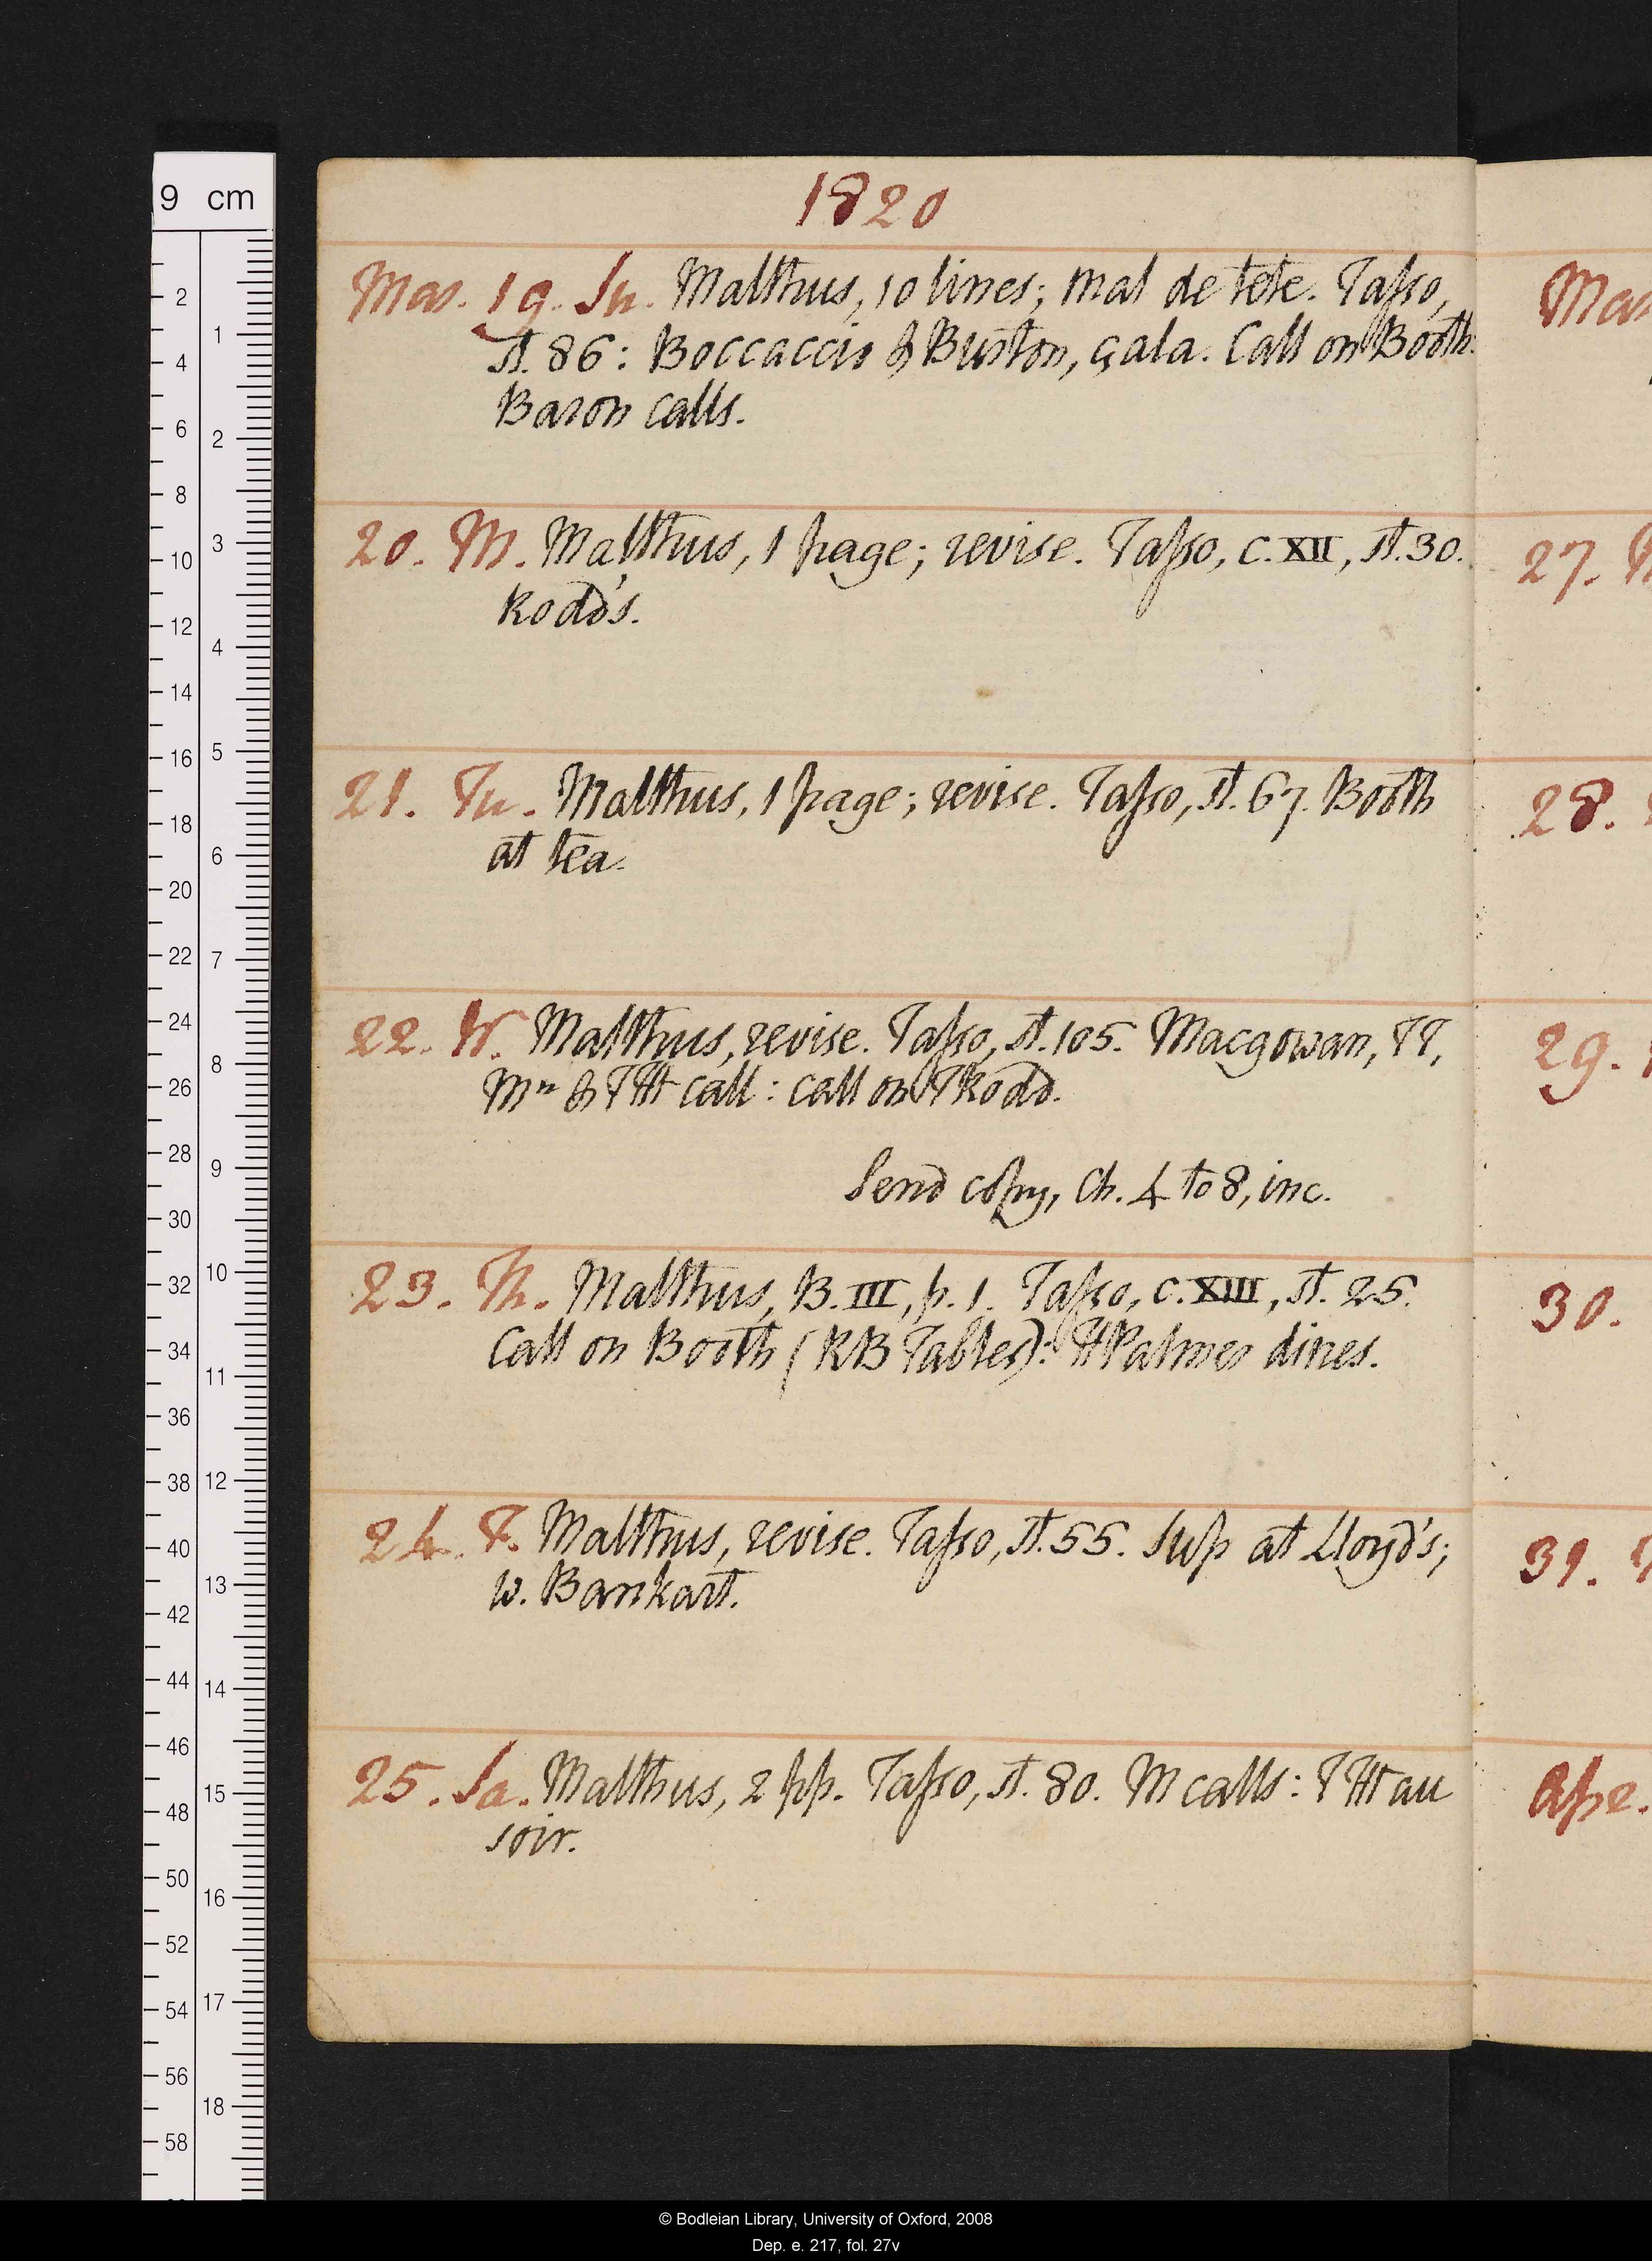 9 cm
1820
Mar. 19. Su. Malthus, 10 lines; mal de tete. Taſso,
st. 86: Boccaccio & Burton, çala. Call on Booth:
Baron calls.
20. M. Malthus, 1 page; revise. Taſso, c. XII, st. 30.
Rodd's.
21. Tu. Malthus, 1 page; revise. Taſso, st. 67. Booth
at tea.
22. W. Malthus, revise. Taſso, st. 105. Macgowan, TT,
& THt call: call on Rodd.
Send copy, Ch. 4 to 8, inc.
23. Th. Malthus, B. III, p. 1. Taſso, c. XIII, st. 25.
Call on Booth (RB Tables): HPalmer dines.
24. F. Malthus, revise. Taſso, st. 55. Sup at Lloyd's;
w. Bankart.
25. Sa. Malthus, 2 pp. Taſso, st. 80. M calls: THt au
soir.
Mar
27.
28.
29.
30.
31.
Apr.
2
4
6
8
10
12
14
16
18
20
22
24
26
28
30
32
34
36
38
40
42
44
46
48
50
52
54
56
58
1
2
3
4
5
6
7
8
9
10
11
12
13
14
15
16
17
18
© Bodleian Library, University of Oxford, 2008
Dep. e. 217, fol. 27v